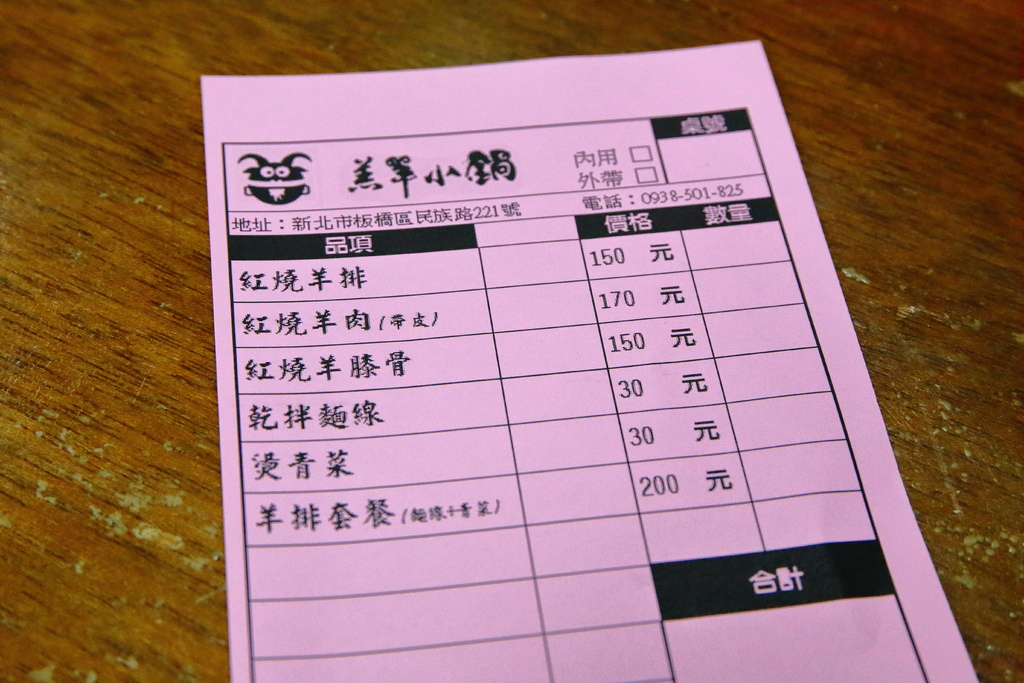 羔單小鍋
內用 □
外帶 □
桌號
地址：新北市板橋區民族路221號
電話：0938-501-825
品項 價格 數量
紅燒羊排 150 元
紅燒羊肉(帶皮) 170 元
紅燒羊膝骨 150 元
乾拌麵線 30 元
燙青菜 30 元
羊排套餐(麵線+青菜) 200 元
合計